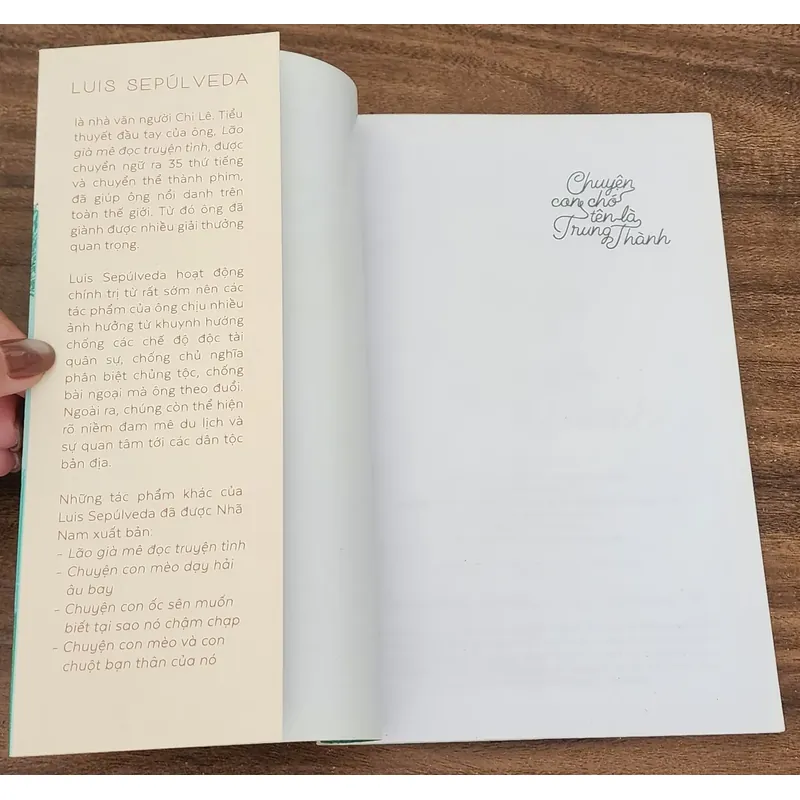 LUIS SEPÚLVEDA
là nhà văn người Chi Lê. Tiểu
thuyết đầu tay của ông, Lão
già mê đọc truyện tình, được
chuyển ngữ ra 35 thứ tiếng
và chuyển thể thành phim,
đã giúp ông nổi danh trên
toàn thế giới. Từ đó ông đã
giành được nhiều giải thưởng
quan trọng.
Luis Sepúlveda hoạt động
chính trị từ rất sớm nên các
tác phẩm của ông chịu nhiều
ảnh hưởng từ khuynh hướng
chống các chế độ độc tài
quân sự, chống chủ nghĩa
phân biệt chủng tộc, chống
bài ngoại mà ông theo đuổi.
Ngoài ra, chúng còn thể hiện
rõ niềm đam mê du lịch và
sự quan tâm tới các dân tộc
bản địa.
Những tác phẩm khác của
Luis Sepúlveda đã được Nhã
Nam xuất bản:
- Lão già mê đọc truyện tình
- Chuyện con mèo dạy hải
âu bay
- Chuyện con ốc sên muốn
biết tại sao nó chậm chạp
- Chuyện con mèo và con
chuột bạn thân của nó
Chuyện
con chó
tên là
Trung Thành